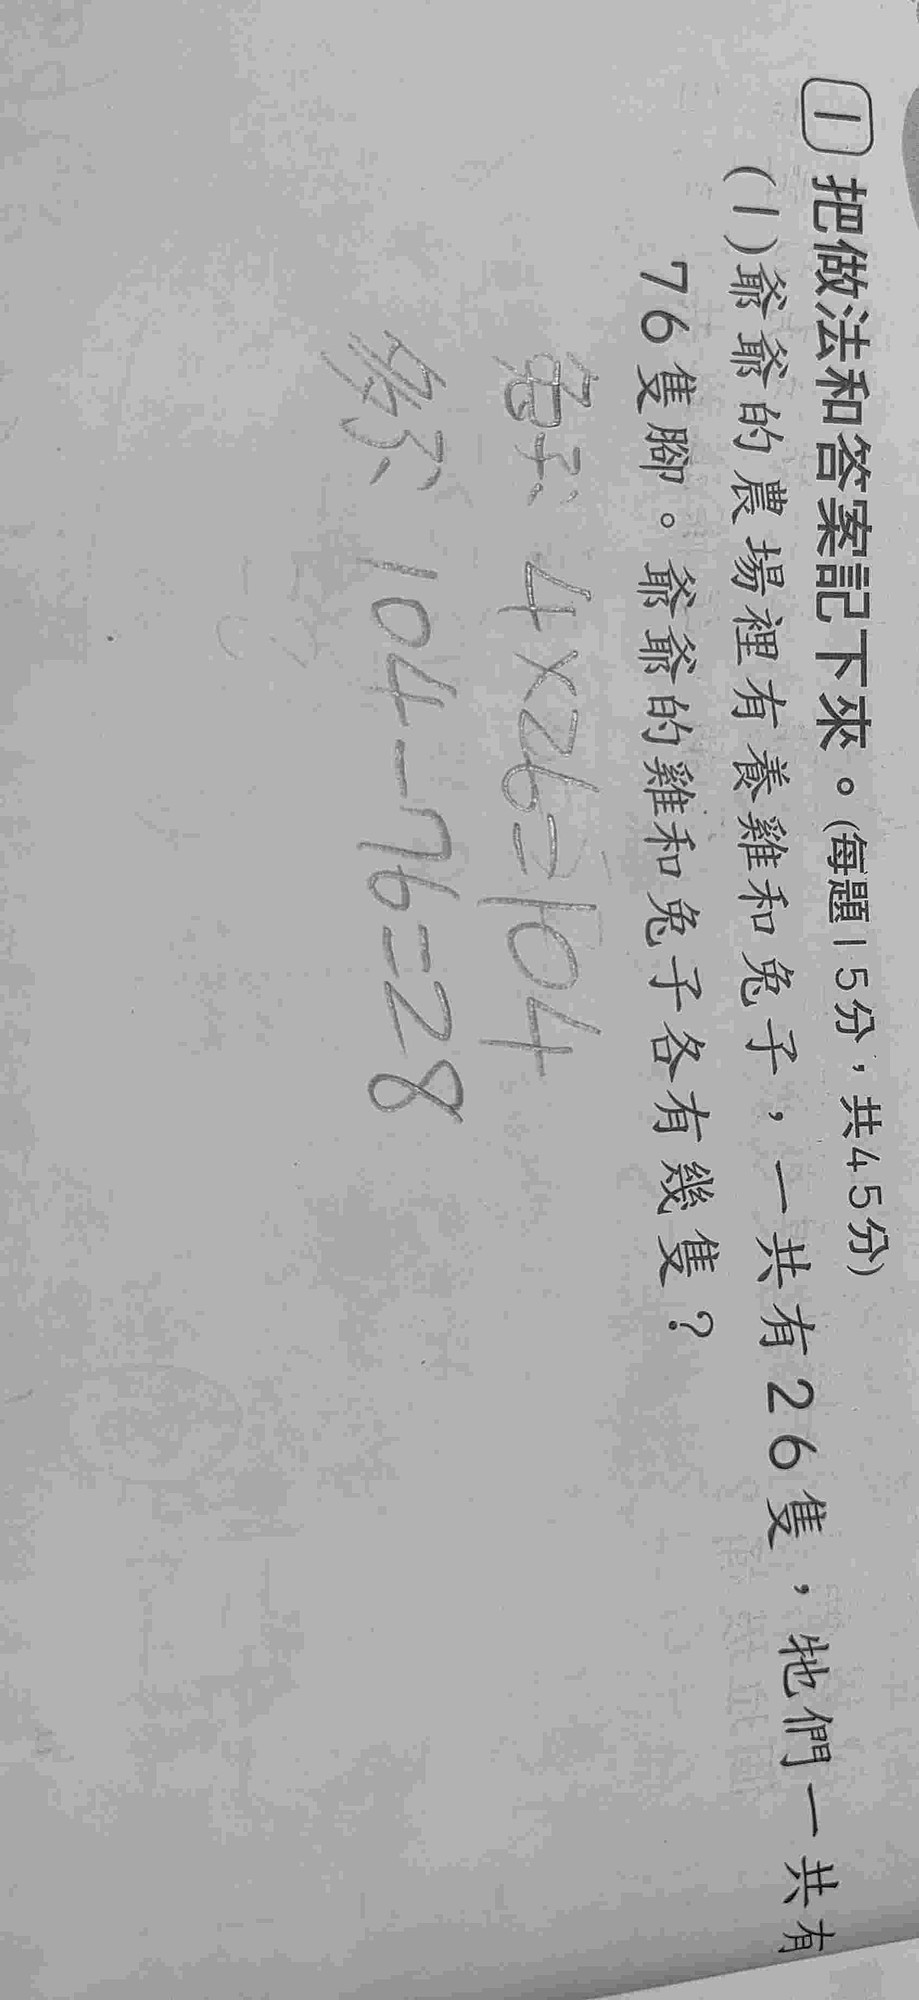 1 把做法和答案記下來。(每題15分，共45分)
(1)爺爺的農場裡有養雞和兔子，一共有26隻，牠們一共有
76隻腳。爺爺的雞和兔子各有幾隻？
兔子: 4×26=104
多了: 104-76=28